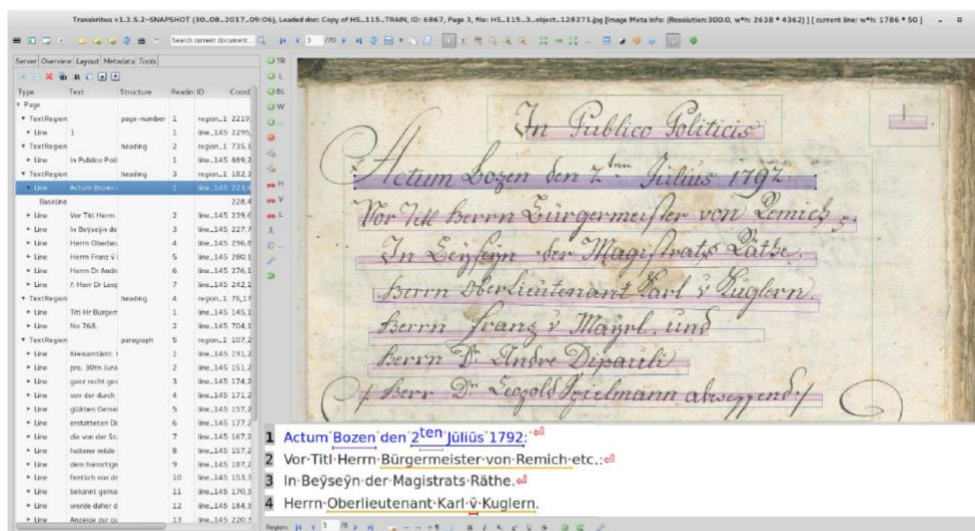 Transkribus v1.3.5.2-SNAPSHOT (30_08_2017_09:06), Loaded doc: Copy of HS_115_TRAIN, ID: 6867, Page 3, file: HS_115_3_object_128271.jpg [Image Meta Info: (Resolution:300.0, w*h: 2638 * 4362) ] [ current line: w*h: 1786 * 50 ]
Search current document...
3
Server Overview Layout Metadata Tools
R
Type Text Structure Readin ID Coord
Page
TextRegion page-number 1 region_1 2219,
Line 1 1 line_145 2295,
TextRegion heading 2 region_1 735,1
Line In Publico Poli 1 line_145 889,2
TextRegion heading 3 region_1 182,3
Line Actum Bozen 1 line_145 223,4
Baseline 228,4
Line Vor Titl Herrn 2 line_145 239,6
Line In Beÿseÿn de 3 line_145 227,7
Line Herrn Oberlieu 4 line_145 296,8
Line Herrn Franz ṽ 5 line_145 280,1
Line Herrn Dr Andr 6 line_145 276,1
Line /: Herr Dr Leop 7 line_145 242,1
TextRegion heading 4 region_1 76,17
Line Titl Hr Bürger 1 line_145 145,1
Line No 768. 2 line_145 704,1
TextRegion paragraph 5 region_1 107,2
Line Kreisamtämt. 1 line_145 191,2
Line pro. 30tn Juni 2 line_145 151,2
Line ganz recht ges 3 line_145 174,2
Line von der durch 4 line_145 171,2
Line glükten Gemei 5 line_145 157,2
Line erstatteten Da 6 line_145 177,2
Line die von der St 7 line_145 167,3
Line haltene milde 8 line_145 157,2
Line dem hierortign 9 line_145 187,2
Line fentlich von dr 10 line_145 153,3
Line bekannt gema 11 line_145 170,3
Line werde daher d 12 line_145 184,3
Line Anzeige zur gu 13 line_145 220,3
TR
L
BL
W
H
V
L
1
In Publico Politicis
Actum Bozen den 2ten Jüliüs 1792.
Vor Titl Herrn Bürgermeister von Remich
In Beÿseÿn der Magistrats Räthe.
Herrn Oberlieutenant Karl ṽ Kuglern.
Herrn Franz ṽ Maÿrl. und
Herrn Dr. Andre Dipauli
/: Herr Dr Leopold Spielmann abweggend:/
1 Actum Bozen den 2ten Jüliüs 1792:
2 Vor Titl Herrn Bürgermeister von Remich etc.:
3 In Beÿseÿn der Magistrats Räthe.
4 Herrn Oberlieutenant Karl ṽ Kuglern.
Region: 3